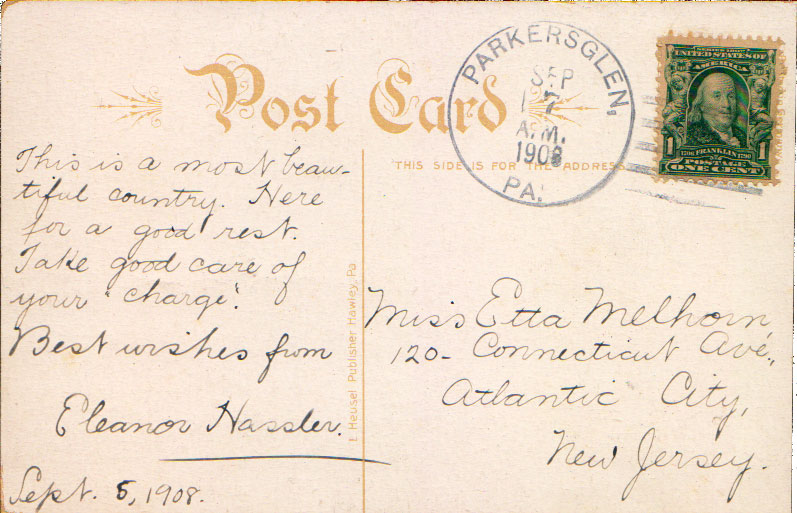 Post Card
THIS SIDE IS FOR THE ADDRESS
PARKERSGLEN,
SEP
7
A.M.
1908
PA.
SERIES 1902
UNITED STATES OF
AMERICA
1706 FRANKLIN 1790
1 POSTAGE 1
ONE CENT
This is a most beau-
tiful country. Here
for a good rest.
Take good care of
your "charge".
Best wishes from
Eleanor Hassler.
Sept. 5, 1908.
L. Heusel Publisher Hawley, Pa
Miss Etta Melhorn,
120- Connecticut Ave.,
Atlantic City,
New Jersey.